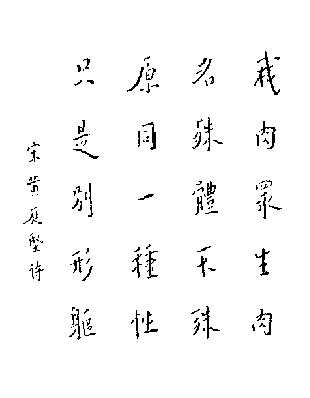 我肉眾生肉
名殊體不殊
原同一種性
只是別形軀
宋黃庭堅詩